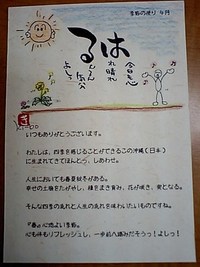 季節の便り 4月
はる
今日も
心
晴れ晴れ
いつもありがとうございます。
わたしは、四季を感じることができるこの沖縄(日本)
に生まれてきてほんとう、しあわせ。
人生においても春夏秋冬がある。
幸せの土壌をたがやし、種をまき育み、花が咲き、実となる。
そんな四季の流れと人生の流れを味わいたいものですね。
『春』心地よい季節。
心も体もリフレッシュし、一歩前へ踏みだそうっ！よしっ！